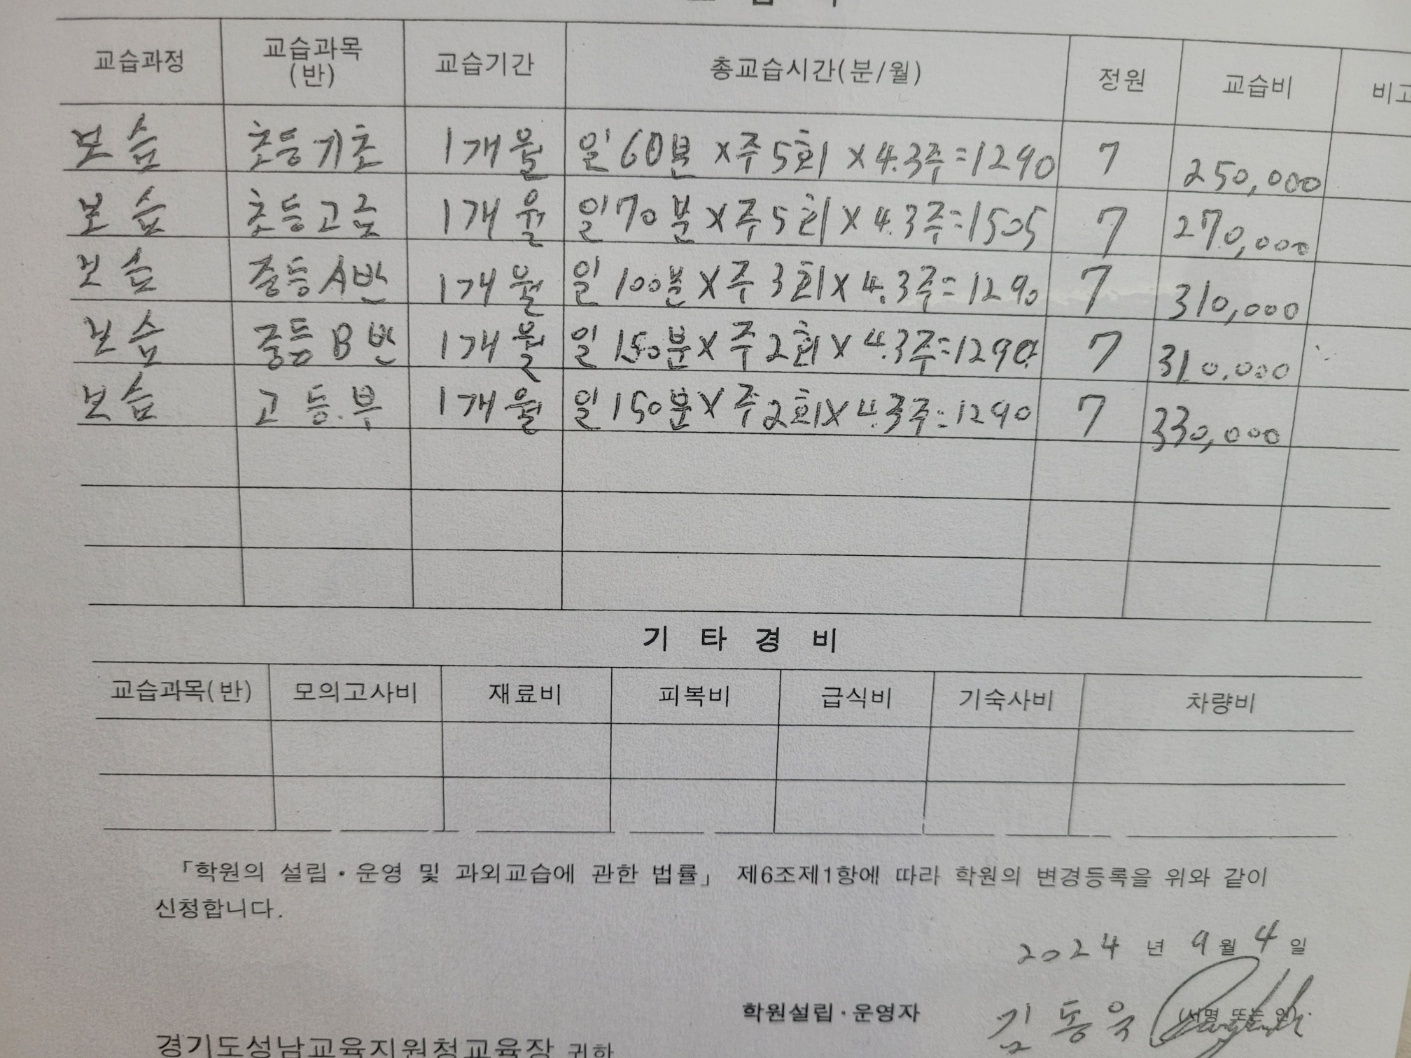 교습과정 교습과목(반) 교습기간 총교습시간(분/월) 정원 교습비 비고
보습 초등기초 1개월 일 60분 X 주 5회 X 4.3주=1290 7 250,000
보습 초등고급 1개월 일 70분 X 주 5회 X 4.3주=1505 7 270,000
보습 중등A반 1개월 일 100분 X 주 3회 X 4.3주=1290 7 310,000
보습 중등B반 1개월 일 150분 X 주 2회 X 4.3주=1290 7 310,000
보습 고등부 1개월 일 150분 X 주 2회 X 4.3주=1290 7 330,000
기 타 경 비
교습과목(반) 모의고사비 재료비 피복비 급식비 기숙사비 차량비
「학원의 설립·운영 및 과외교습에 관한 법률」 제6조제1항에 따라 학원의 변경등록을 위와 같이
신청합니다.
2024 년 9 월 4 일
학원설립·운영자 김동욱 (서명 또는 인)
경기도성남교육지원청교육장 귀하